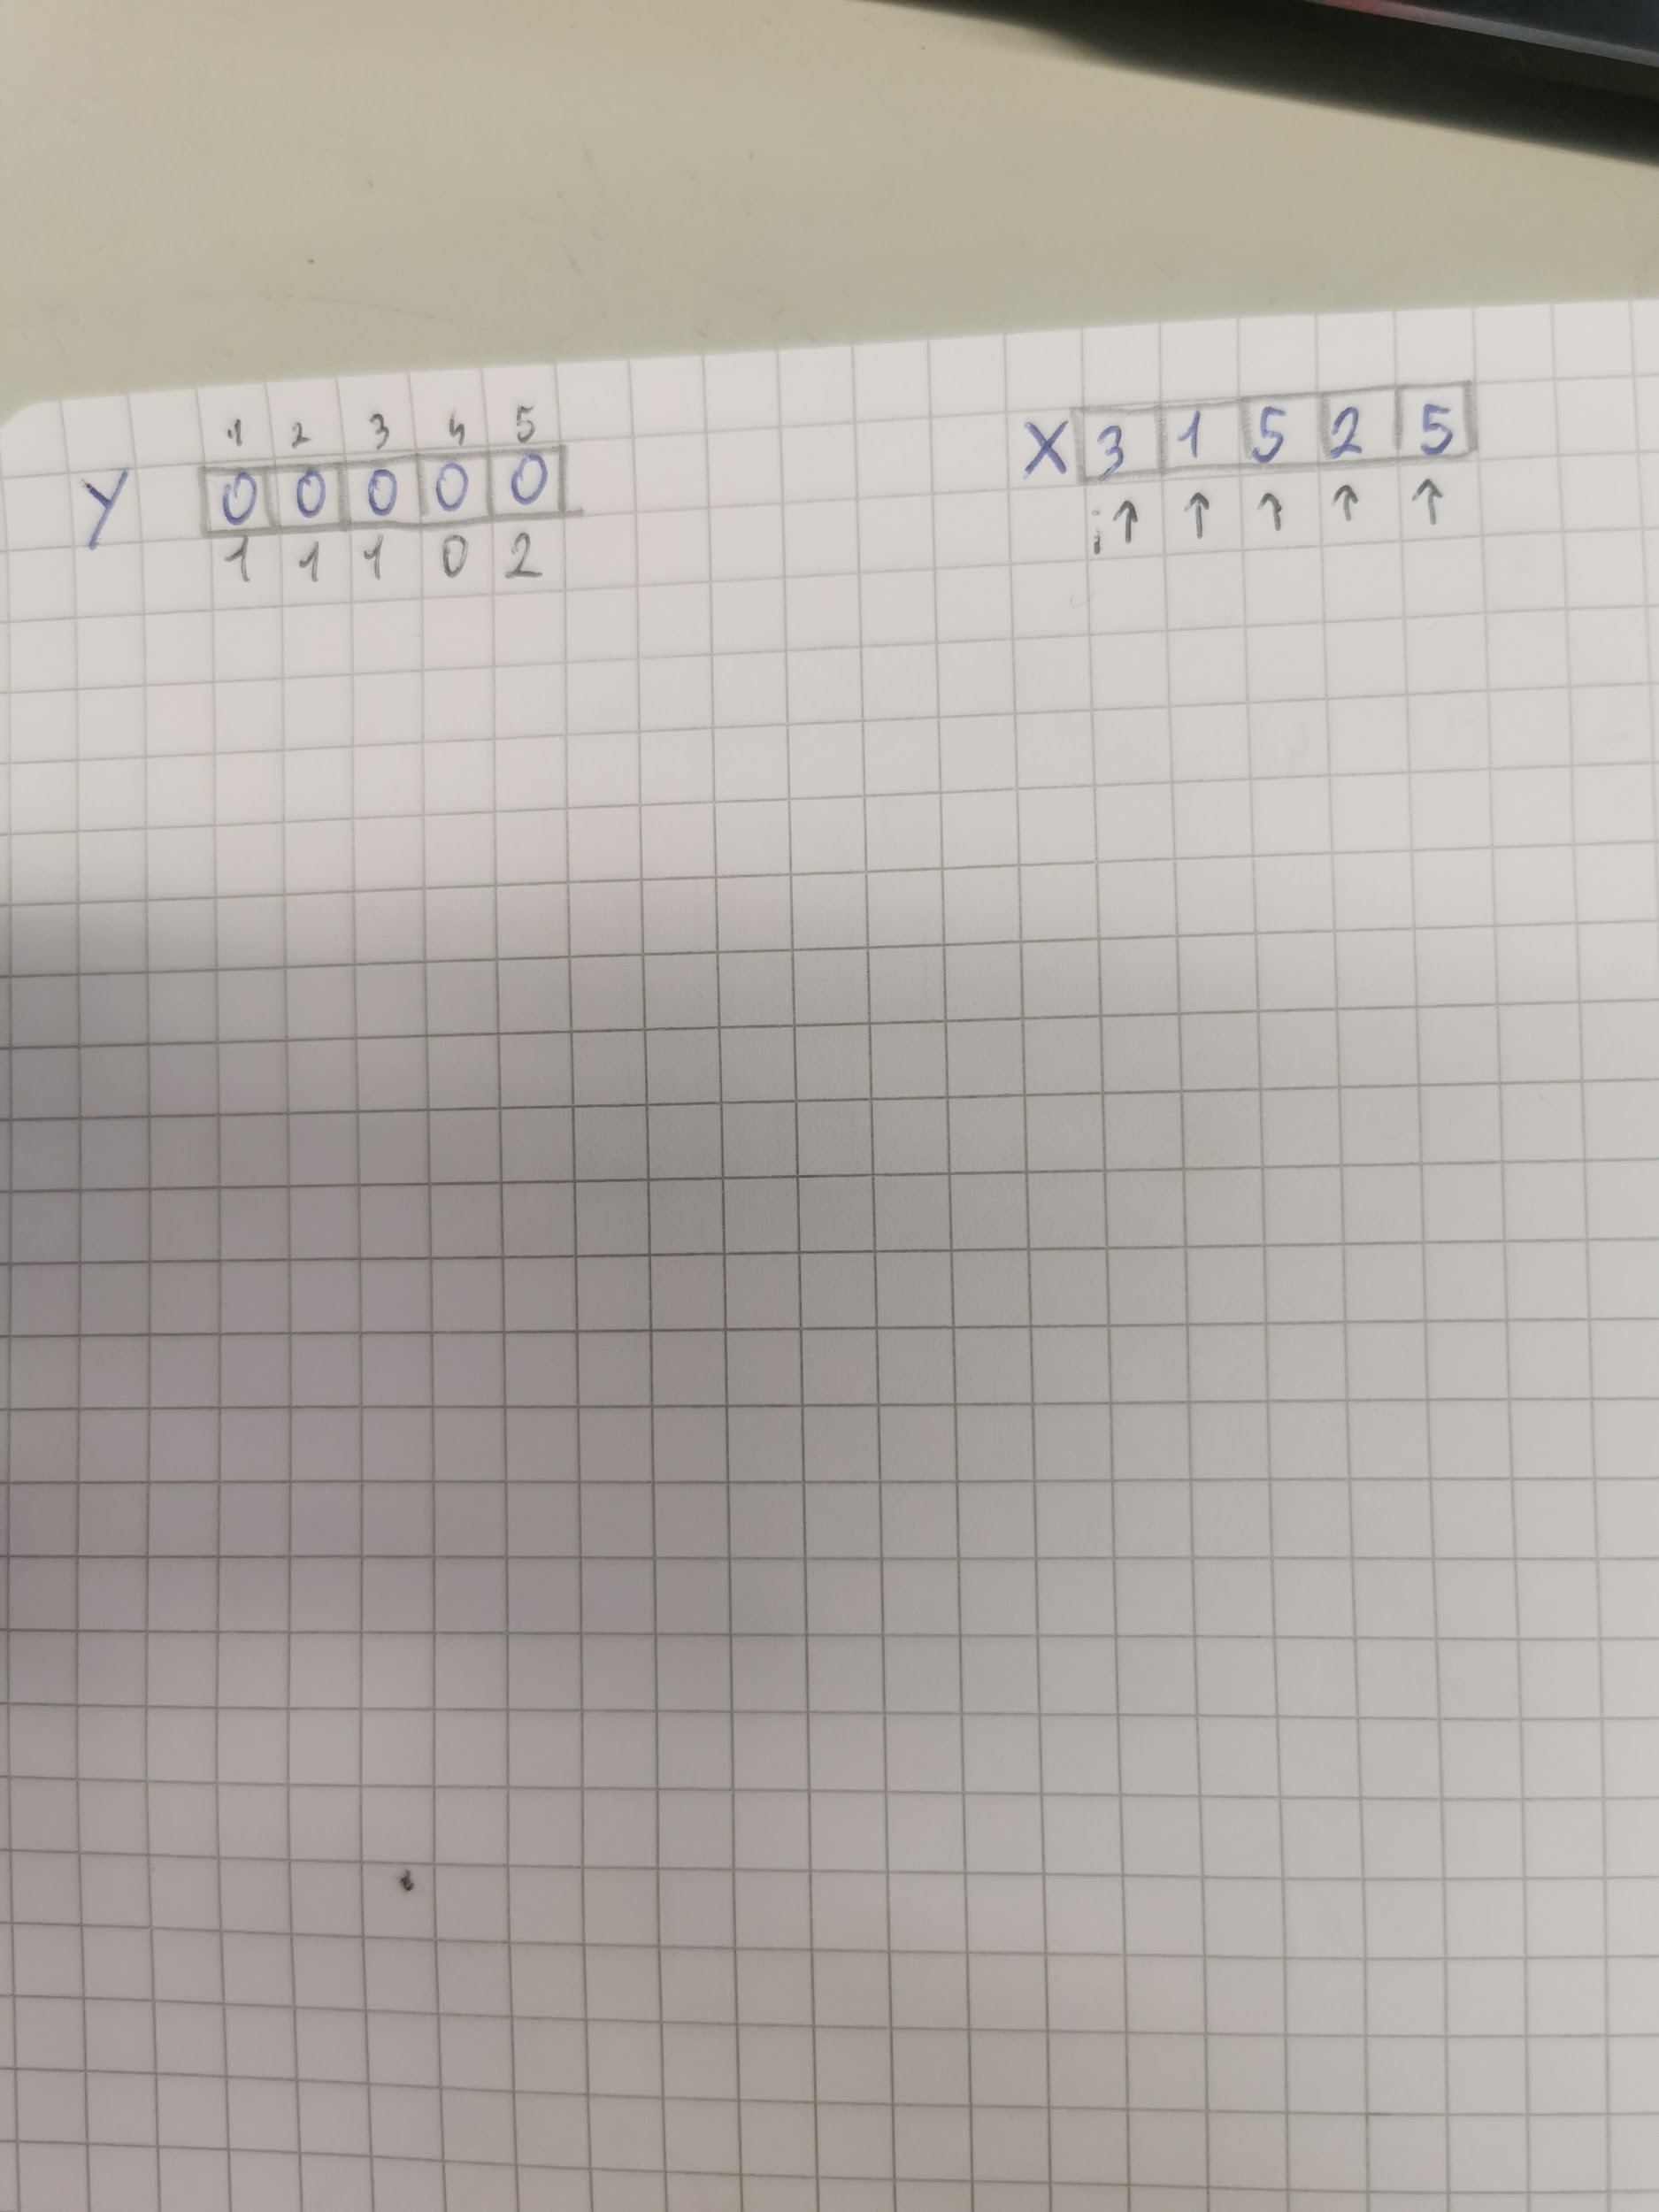 1 2 3 4 5
Y 0 0 0 0 0
1 1 1 0 2
X 3 1 5 2 5
i↑ ↑ ↑ ↑ ↑